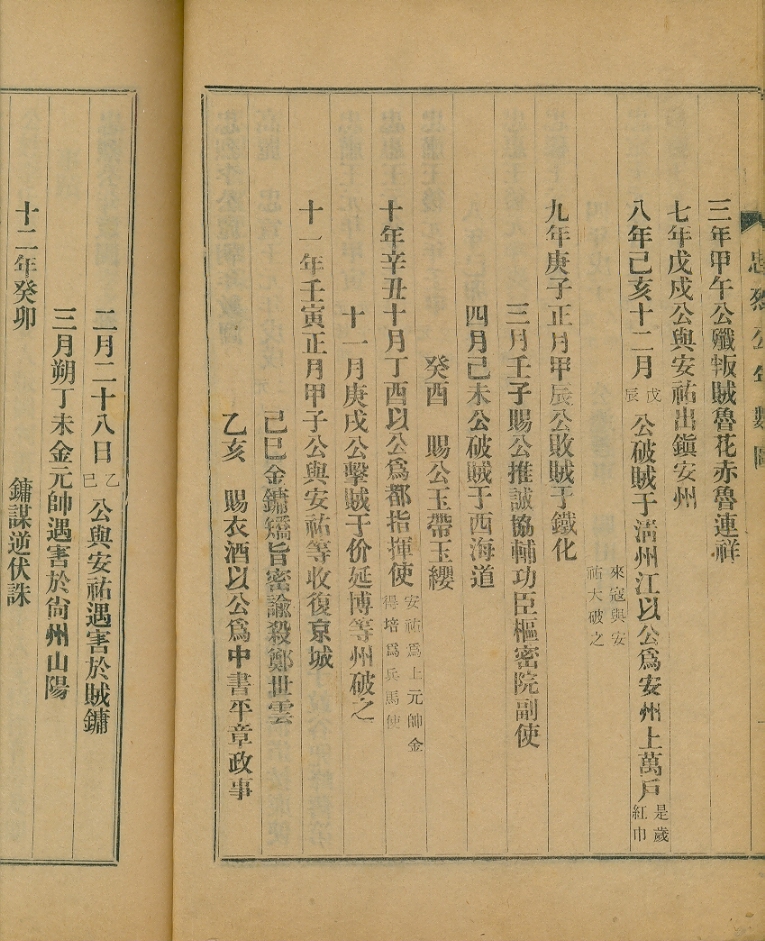 忠烈公年數圖
三年甲午公殲叛賊魯花赤魯連祥
七年戊戌公與安祐出鎭安州
八年己亥十二月戊辰公破賊于淸州江以公爲安州上萬戶是歲紅巾
來寇與安祐大破之
九年庚子正月甲辰公敗賊于鐵化
三月壬子賜公推誠協輔功臣樞密院副使
四月己未公破賊于西海道
癸酉 賜公玉帶玉纓
十年辛丑十月丁酉以公爲都指揮使安祐爲上元帥金得培爲兵馬使
十一月庚戌公擊賊于价延博等州破之
十一年壬寅正月甲子公與安祐等收復京城
己巳金鏞矯旨密諭殺鄭世雲
乙亥 賜衣酒以公爲中書平章政事
二月二十八日乙巳公與安祐遇害於賊鏞
三月朔丁未金元帥遇害於尙州山陽
十二年癸卯 鏞謀逆伏誅